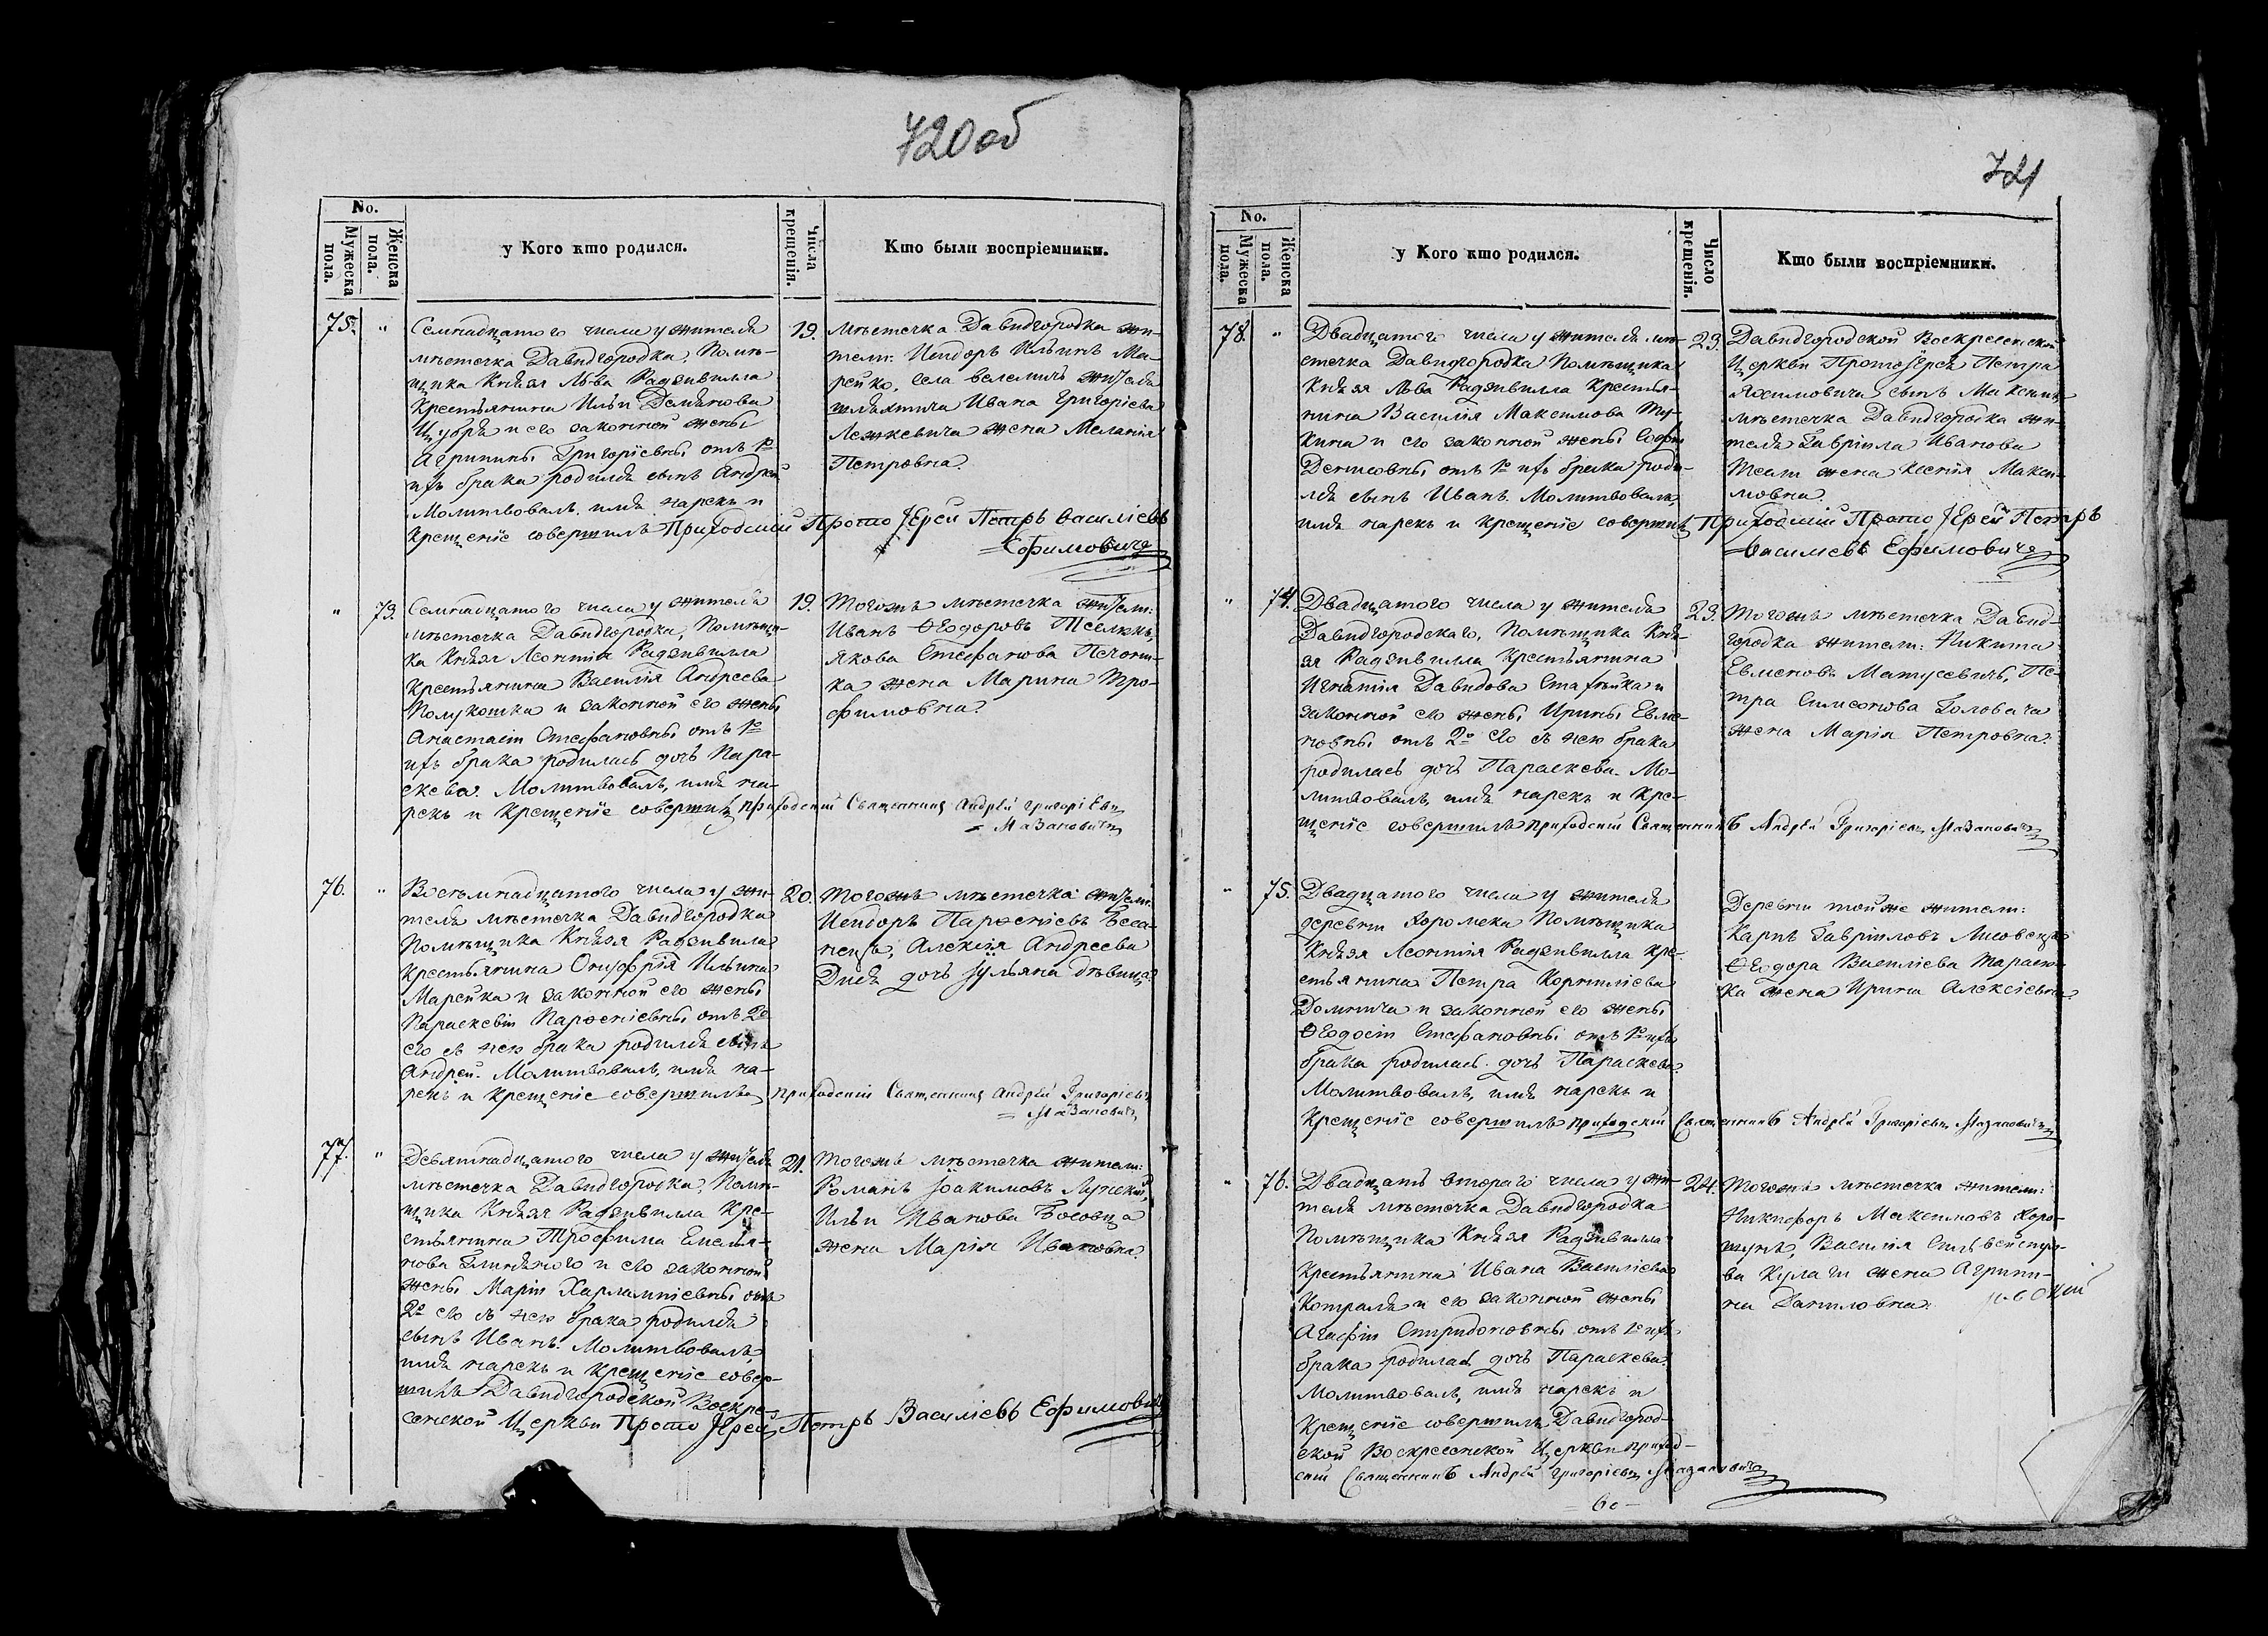 720 об
No.
Мужеска пола.
Женска пола.
у Кого кто родился.
Числа крещенія.
Кто были воспріемники.
75. "
Семнадцатого числа у жителя
мѣстечка Давидгородка, Помѣ-
щика Князя Льва Радзивилла
Крестьянина Ильи Демьянова
и его законной жены
Агрипины Григоріевны отъ 1го
ихъ брака родился сынъ Андрей
Молитвовалъ, имя нарекъ и
Крещеніе совершилъ Приходскій Прото Іерей Петръ Василіевъ
Ефимовичъ
19.
Мѣстечка Давидгородка жи-
тели: Исидоръ Ильинъ Ма-
рейко, села Велемичъ жителя
шляхтича Ивана Григоріева
Лежкевича жена Меланія
Петровна.
" 73.
Семнадцатого числа у жителя
мѣстечка Давидгородка, Помѣщи-
ка Князя Леонтія Радзивилла
Крестьянина Василія Андреева
Полукошка и законной его жены
Анастасіи Стефановны отъ 1го
ихъ брака родилась дочь Пара-
скева. Молитвовалъ, имя на-
рекъ и Крещеніе совершилъ приходскій Священникъ Андрей Григоріевъ
Мазановичъ
19.
Тогожъ мѣстечка жители:
Иванъ Ѳеодоровъ
Якова Стефанова
ка жена Марина Тро-
фимовна.
76. "
Восьмнадцатого числа у жи-
теля мѣстечка Давидгородка
Помѣщика Князя Радзивилла
Крестьянина Онуфрія Ильина
Марейка и законной его жены
Параскевіи Парѳеніевны отъ 2го
его съ нею брака родился сынъ
Андрей. Молитвовалъ, имя на-
рекъ и Крещеніе совершилъ приходскій Священникъ Андрей Григоріевъ
Мазановичъ
20.
Тогожъ мѣстечка жители:
Исидоръ Парѳеніевъ
Алексія Андреева
дочь Іульяна дѣвица.
77. "
Девятнадцатого числа у жителя
мѣстечка Давидгородка, Помѣ-
щика Князя Радзивилла Кре-
стьянина Трофима Емелья-
нова и его законной
жены Маріи Харлампіевны отъ
2го его съ нею брака родился
сынъ Иванъ. Молитвовалъ,
имя нарекъ и Крещеніе совер-
шилъ Давидгородской Воскре-
сенской Церкви Прото Іерей Петръ Василіевъ Ефимовичъ
21.
Тогожъ мѣстечка жители:
Романъ Іоакимовъ
Ильи Иванова
жена Марія Ивановна.
721
No.
Мужеска пола.
Женска пола.
у Кого кто родился.
Число крещенія.
Кто были воспріемники.
78. "
Двадцатого числа у жителя мѣ-
стечка Давидгородка Помѣщика
Князя Льва Радзивилла Крестья-
нина Василія Максимова
и его законной жены Софіи
Денисовны отъ 1го ихъ брака роди-
лся сынъ Иванъ. Молитвовалъ,
имя нарекъ и Крещеніе совершилъ Приходскій Прото Іерей Петръ
Василіевъ Ефимовичъ
23.
Давидгородской Воскресенской
Церкви Протоіерея Петра
сынъ
мѣстечка Давидгородка жи-
теля Гавріила Иванова
жена Ксенія Макси-
мовна.
" 74.
Двадцатого числа у жителя
Давидгородского, Помѣщика Кня-
зя Радзивилла Крестьянина
Игнатія Давидова и
законной его жены Ирины Евме-
новны отъ 2го его съ нею брака
родилась дочь Параскева. Мо-
литвовалъ, имя нарекъ и Кре-
щеніе совершилъ приходскій Священникъ Андрей Григоріевъ Мазановичъ
23.
Тогожъ мѣстечка Давид-
городка жители: Никита
Евменовъ Матусевичъ, Пе-
тра Симеонова Головача
жена Марія Петровна.
" 75.
Двадцатого числа у жителя
деревни Хоромска Помѣщика
Князя Леонтія Радзивилла Кре-
стьянина Петра Корниліева
и законной его жены
Ѳеодосіи Стефановны отъ 1го ихъ
брака родилась дочь Параскева.
Молитвовалъ, имя нарекъ и
Крещеніе совершилъ приходскій Священникъ Андрей Григоріевъ Мазановичъ
Деревни той же жители:
Карпъ Гавріиловъ Лисовецъ
Ѳеодора Василіева
ка жена Ирина Алексіевна.
" 76.
Двадцать второго числа у жи-
теля мѣстечка Давидгородка
Помѣщика Князя Радзивилла
Крестьянина Ивана Василіева
и его законной жены
Агафіи Спиридоновны отъ 1го ихъ
брака родилась дочь Параскева.
Молитвовалъ, имя нарекъ и
Крещеніе совершилъ Давидгород-
ской Воскресенской Церкви приход-
скій Священникъ Андрей Григоріевъ Мазановичъ
24.
Тогожъ мѣстечка жители:
Никифоръ Максимовъ
Василія Сильвестро-
ва Кулаги жена Агрипи-
на Даниловна.